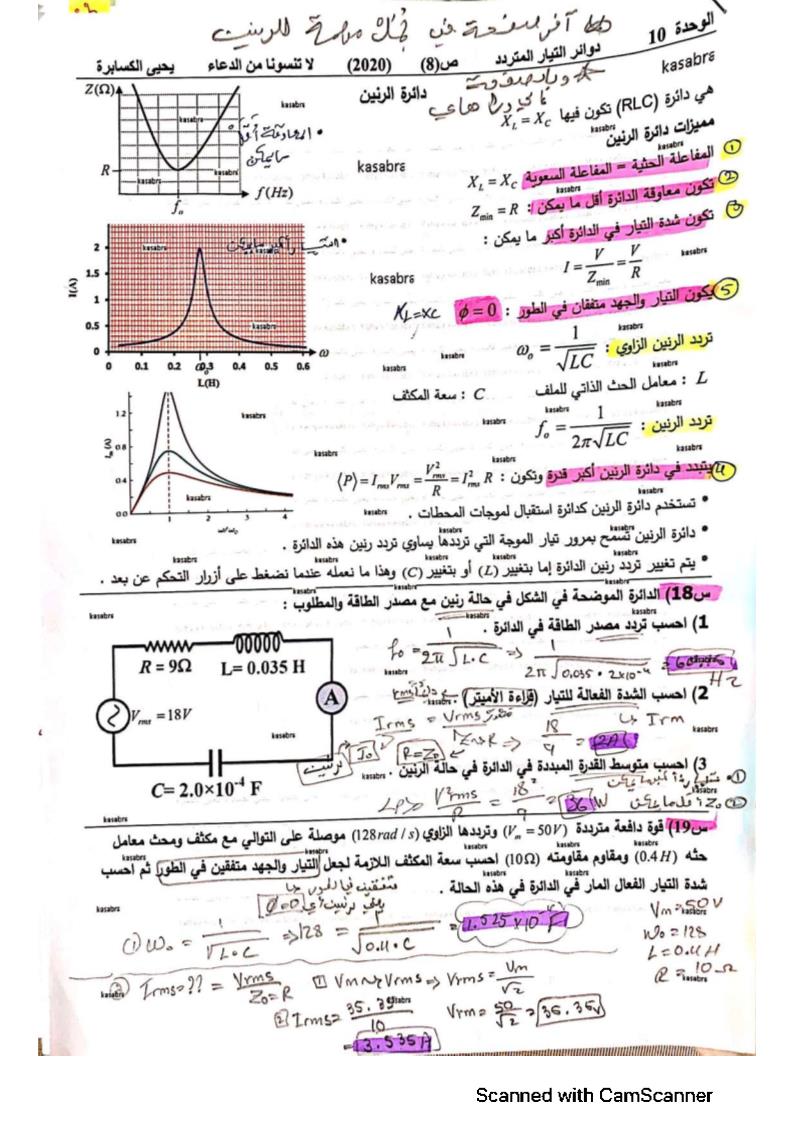 الوحدة 10
دوائر التيار المتردد ص(8) (2020) لا تنسونا من الدعاء يحيى الكسابرة
kasabra
دائرة الرنين
هي دائرة (RLC) تكون فيها X_L = X_C
مميزات دائرة الرنين
① المفاعلة الحثية = المفاعلة السعوية X_L = X_C
② تكون معاوقة الدائرة أقل ما يمكن: Z_min = R
③ تكون شدة التيار في الدائرة أكبر ما يمكن :
I = V/Z_min = V/R
⑤ يكون التيار والجهد متفقان في الطور : ϕ = 0 X_L = X_C
تردد الرنين الزاوي : ω_o = 1/√LC
L : معامل الحث الذاتي للملف C : سعة المكثف
تردد الرنين : f_o = 1/2π√LC
④ يتبدد في دائرة الرنين أكبر قدرة وتكون : ⟨P⟩ = I_rms V_rms = V²_rms/R = I²_rms R
• تستخدم دائرة الرنين كدائرة استقبال لموجات المحطات .
• دائرة الرنين تسمح بمرور تيار الموجة التي ترددها يساوي تردد رنين هذه الدائرة .
• يتم تغيير تردد رنين الدائرة إما بتغيير (L) أو بتغيير (C) وهذا ما نعمله عندما نضغط على أزرار التحكم عن بعد .
Z(Ω)
R
f_o
f(Hz)
• المعاوقة أقل ما يمكن
I(A)
2
1.5
1
0.5
0
0 0.1 0.2 0.3 0.4 0.5 0.6
ω_o
ω
L(H)
I_m (A)
1.2
0.8
0.4
0.0
1 2 3 4
س18) الدائرة الموضحة في الشكل في حالة رنين مع مصدر الطاقة والمطلوب :
1) احسب تردد مصدر الطاقة في الدائرة .
f_o = 1/2π√L·C ⇒ 1/2π√0.035 · 2×10⁻⁴ = 60 Hz
2) احسب الشدة الفعالة للتيار (قراءة الأميتر) .
I rms = V rms / Z → R ⇒ 18/9 = 2A
R = Z_o
I_o
3) احسب متوسط القدرة المبددة في الدائرة في حالة الرنين .
<P> V²rms/R = 18²/9 = 36 W
R = 9Ω L= 0.035 H
V_rms = 18V
A
C= 2.0×10⁻⁴ F
س19) قوة دافعة مترددة (V_m = 50V) وترددها الزاوي (128rad / s) موصلة على التوالي مع مكثف ومحث معامل
حثه (0.4H) ومقاوم مقاومته (10Ω) احسب سعة المكثف اللازمة لجعل التيار والجهد متفقين في الطور ثم احسب
شدة التيار الفعال المار في الدائرة في هذه الحالة .
ϕ=0
① ω_o = 1/√L·C ⇒ 128 = 1/√0.4·C = 1.525×10⁻⁴ F
Vm = 50V
ω_o = 128
L = 0.4 H
R = 10 Ω
② Irms = ?? = Vrms/Z_o=R ① Vm → Vrms ⇒ Vrms = Vm/√2
② Irms = 35.35/10 Vrm = 50/√2 = 35.35V
= 3.535A
Scanned with CamScanner